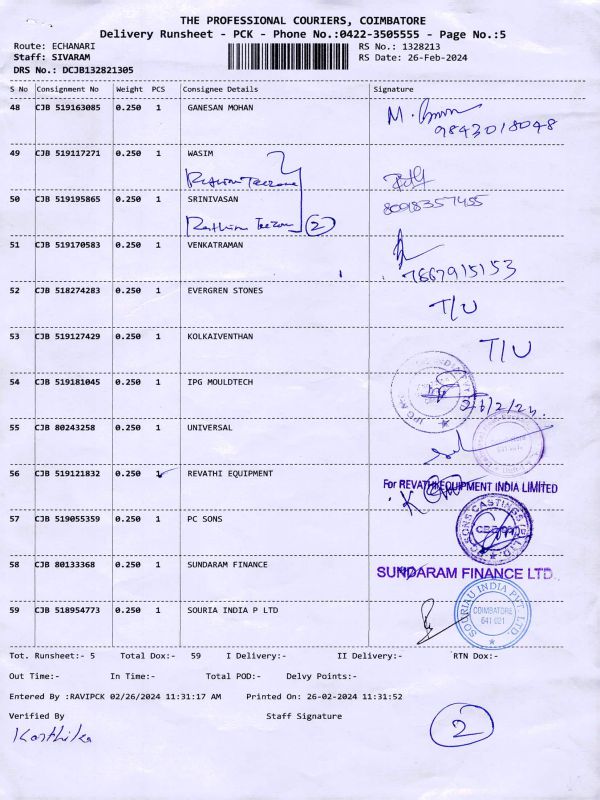 THE PROFESSIONAL COURIERS, COIMBATORE
Delivery Runsheet - PCK - Phone No.:0422-3505555 - Page No.:5
Route: ECHANARI RS No.: 1328213
Staff: SIVARAM RS Date: 26-Feb-2024
DRS No.: DCJB132821305
S No Consignment No Weight PCS Consignee Details Signature
48 CJB 519163085 0.250 1 GANESAN MOHAN
9843018048
49 CJB 519117271 0.250 1 WASIM
50 CJB 519195865 0.250 1 SRINIVASAN
8098357455
2
51 CJB 519170583 0.250 1 VENKATRAMAN
7667915153
52 CJB 518274283 0.250 1 EVERGREN STONES T/U
53 CJB 519127429 0.250 1 KOLKAIVENTHAN T/U
54 CJB 519181045 0.250 1 IPG MOULDTECH
55 CJB 80243258 0.250 1 UNIVERSAL
56 CJB 519121832 0.250 1 REVATHI EQUIPMENT
For REVATHI EQUIPMENT INDIA LIMITED
57 CJB 519055359 0.250 1 PC SONS
SONS CASTINGS
58 CJB 80133368 0.250 1 SUNDARAM FINANCE
SUNDARAM FINANCE LTD
59 CJB 518954773 0.250 1 SOURIA INDIA P LTD
SOURIAU INDIA PVT. LTD
COIMBATORE
641 021
Tot. Runsheet:- 5 Total Dox:- 59 I Delivery:- II Delivery:- RTN Dox:-
Out Time:- In Time:- Total POD:- Delvy Points:-
Entered By :RAVIPCK 02/26/2024 11:31:17 AM Printed On: 26-02-2024 11:31:52
Verified By Staff Signature
Karthika
2